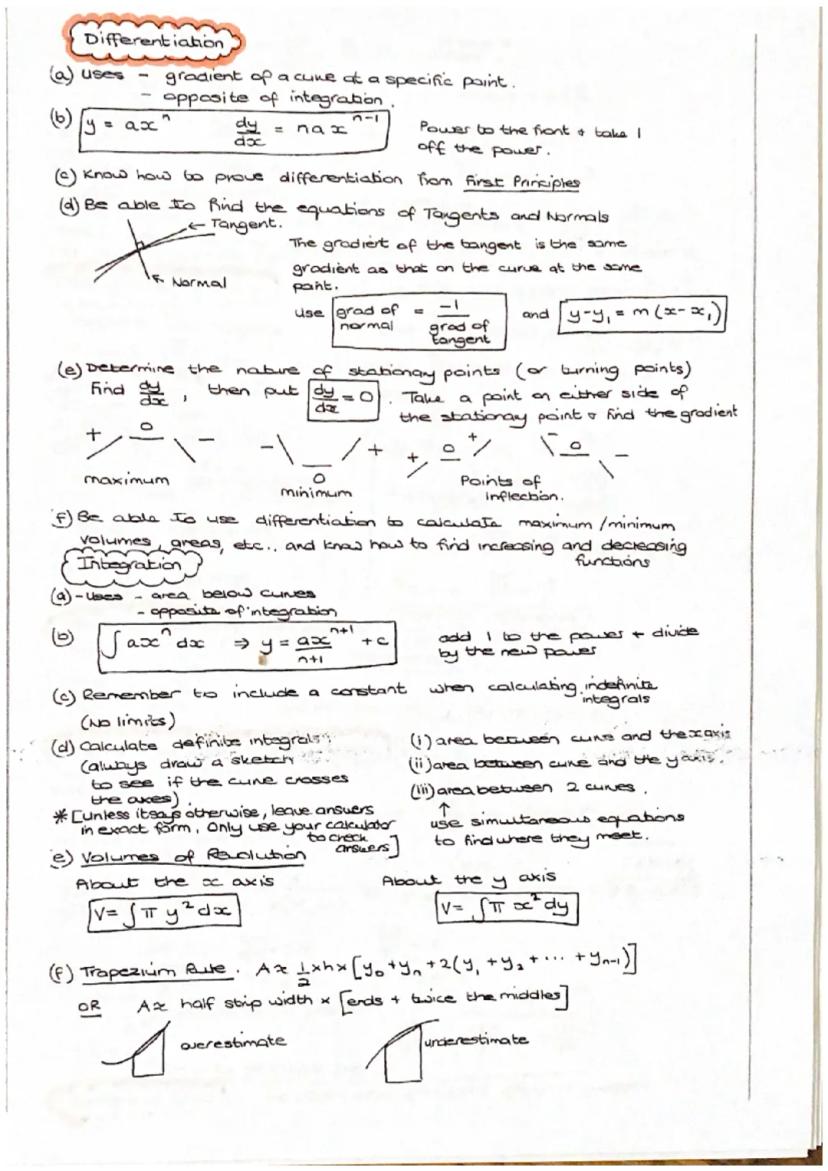 Differentiation
(a) Uses - gradient of a curve at a specific point.
- opposite of integration.
(b) y = axⁿ dy/dx = naxⁿ⁻¹ Power to the front & take 1
off the power.
(c) Know how to prove differentiation from First Principles
(d) Be able to find the equations of Tangents and Normals
← Tangent.
The gradient of the tangent is the same
gradient as that on the curve at the same
point.
Normal
use grad of normal = -1/grad of tangent and y-y₁ = m(x-x₁)
(e) Determine the nature of stationary points (or turning points)
Find dy/dx, then put dy/dx = 0. Take a point on either side of
the stationary point & find the gradient
+ 0 - - 0 + + 0 + - 0 -
maximum
minimum
Points of
inflection.
f) Be able to use differentiation to calculate maximum/minimum
volumes, areas, etc.. and know how to find increasing and decreasing
functions
Integration
(a) - Uses - area below curves
- opposite of integration
(b) ∫axⁿ dx ⇒ y = axⁿ⁺¹/n+1 + c add 1 to the power + divide
by the new power
(c) Remember to include a constant when calculating indefinite
integrals
(No limits)
(d) Calculate definite integrals: (i) area between curve and the x axis
(always draw a sketch (ii) area between curve and the y axis.
to see if the curve crosses
the axes) (iii) area between 2 curves.
*[unless it says otherwise, leave answers
in exact form. Only use your calculator
to check
answers]
↑
use simultaneous equations
to find where they meet.
e) Volumes of Revolution
About the x axis About the y axis
V= ∫π y² dx V= ∫π x² dy
(f) Trapezium Rule. A≈ ½ xhx [y₀+yₙ+2(y₁+y₂+...+yₙ₋₁)]
OR A≈ half strip width x [ends + twice the middles]
overestimate underestimate